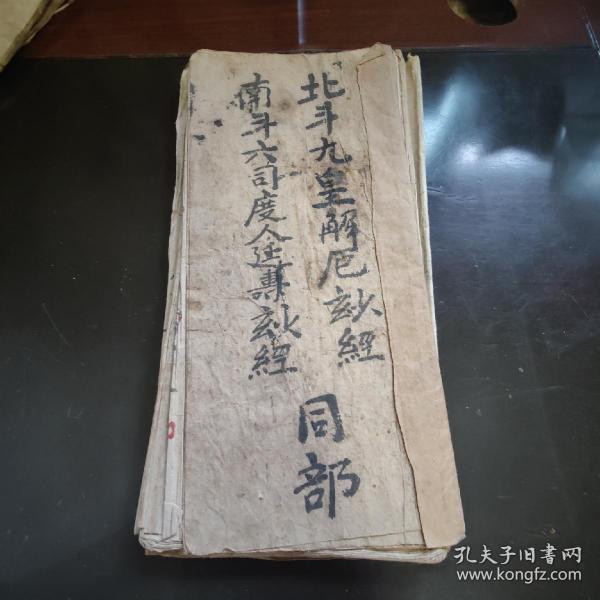 北斗九皇解厄玅經
南斗六司度人延壽玅經
同部
孔夫子旧书网
www.kongfz.com